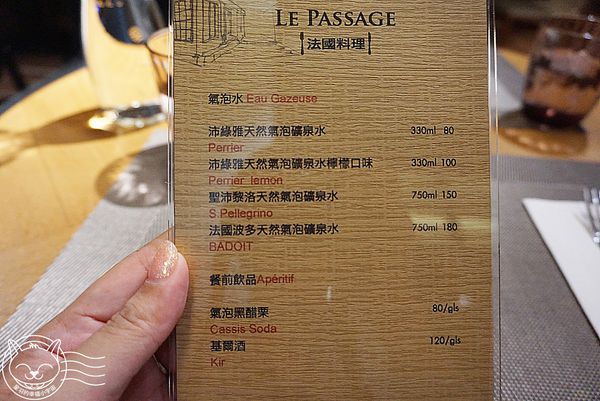 LE PASSAGE
【法國料理】
氣泡水 Eau Gazeuse
沛綠雅天然氣泡礦泉水 330ml 80
Perrier
沛綠雅天然氣泡礦泉水檸檬口味 330ml 100
Perrier lemon
聖沛黎洛天然氣泡礦泉水 750ml 150
S.Pellegrino
法國波多天然氣泡礦泉水 750ml 180
BADOIT
餐前飲品Apéritif
氣泡黑醋栗 80/gls
Cassis Soda
基爾酒 120/gls
Kir